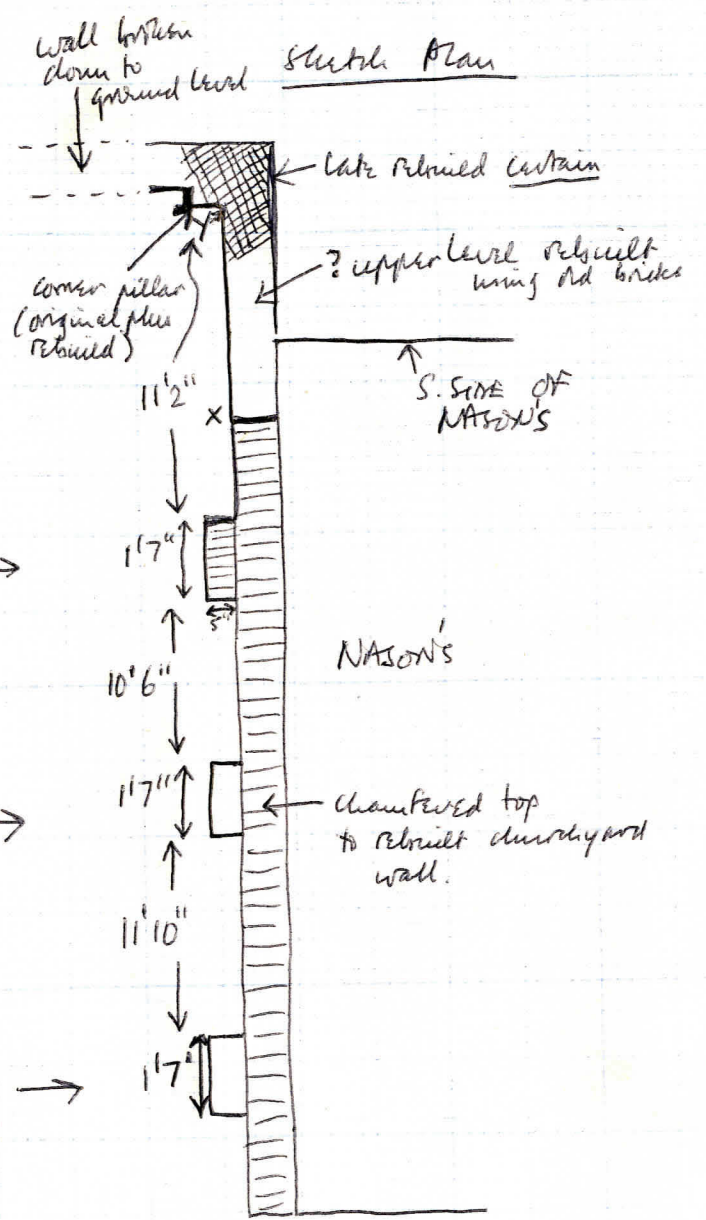 wall broken
down to
ground level
Sketch Plan
late rebuild certain
? upper level rebuilt
using old bricks
corner pillar
(original plus
rebuild)
11'2"
S. SIDE OF
NASON'S
X
1'7"
5"
NASON'S
10'6"
1'7"
chamfered top
to rebuilt churchyard
wall.
11'10"
1'7"